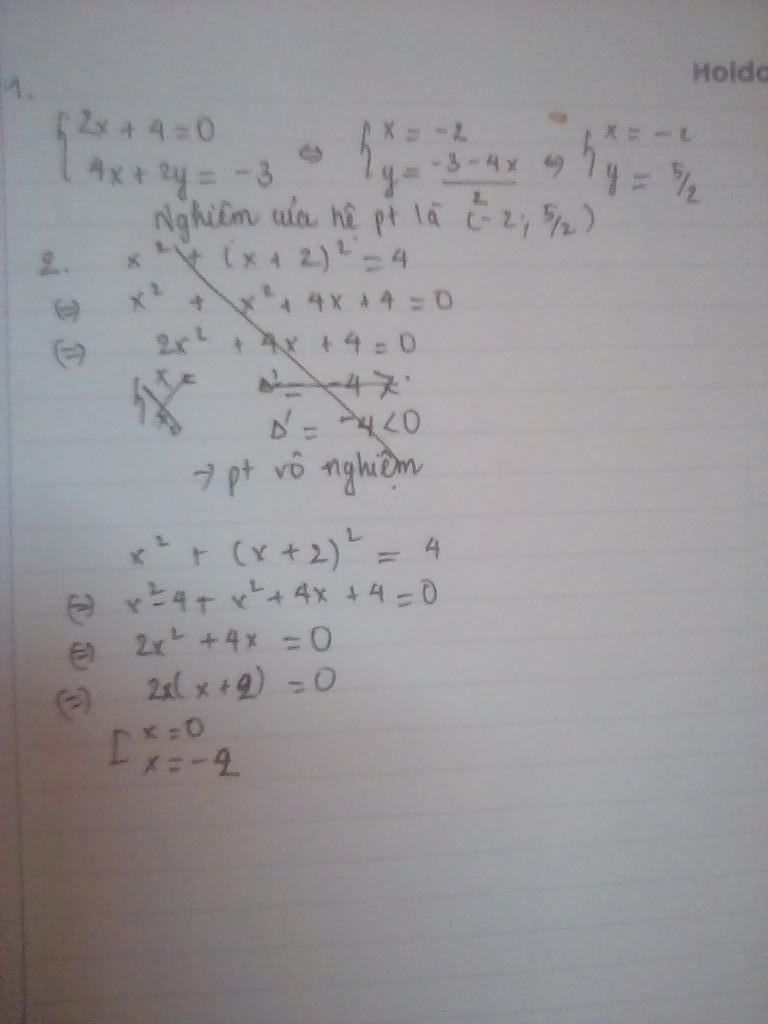 Holdo
1.
{ 2x + 4 = 0 ⇔ { x = -2 ⇔ { x = -2
4x + 2y = -3 y = (-3 - 4x)/2 y = 5/2
Nghiệm của hệ pt là (-2; 5/2)
2. x² + (x + 2)² = 4
⇔ x² + x² + 4x + 4 = 0
⇔ 2x² + 4x + 4 = 0
{ x = Δ' = -4 >
x Δ' = -4 < 0
→ pt vô nghiệm
x² + (x + 2)² = 4
⇔ x² - 4 + x² + 4x + 4 = 0
⇔ 2x² + 4x = 0
⇔ 2x(x + 2) = 0
[ x = 0
x = -2